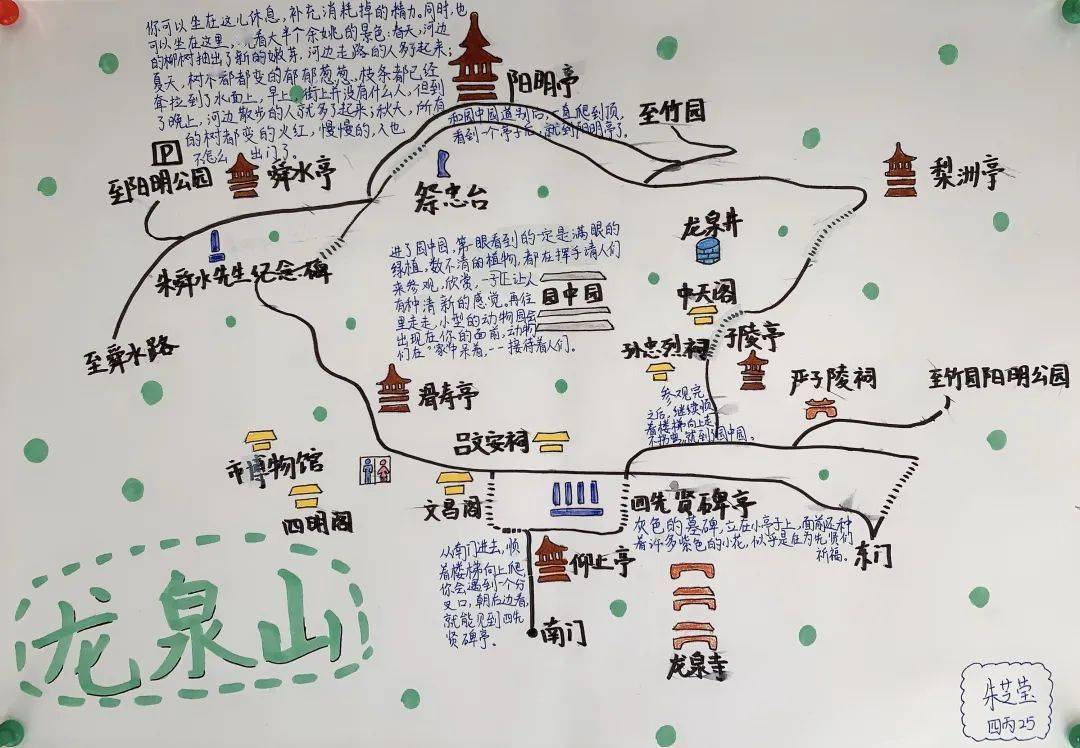 你可以坐在这儿休息，补充消耗掉的精力。同时，也
可以坐在这里，看大半个余姚的景色：春天，河边
的柳树抽出了新的嫩芽，河边走路的人多了起来；
夏天，树木都都变的郁郁葱葱，枝条都已经
耷拉到了水面上，早上，街上并没有什么人，但到
了晚上，河边散步的人就多了起来；秋天，所有
的树都变的火红，慢慢的，人也
不怎么出门了。
阳明亭
和园中园道别后，一直爬到顶，
看到一个亭子后，就到阳明亭了。
至竹园
P
至阳明公园
舜水亭
祭忠台
梨洲亭
龙泉井
朱舜水先生纪念碑
进了园中园，第一眼看到的一定是满眼的
绿植，数不清的植物，都在挥手请人们
来参观，欣赏，一子正让人
有种清新的感觉。再往
里走走，小型的动物园会
出现在你的面前，动物
们在“家”中呆着，一一接待着人们。
园中园
中天阁
至舜水路
孙忠烈祠
子陵亭
严子陵祠
至竹园阳明公园
滑寿亭
参观完
之后，继续顺
着楼梯向上走，
不拐弯，就到了园中园。
吕文安祠
市博物馆
四明阁
文昌阁
四先贤碑亭
灰色的墓碑，立在小亭子上，面前还种
着许多紫色的小花，似乎是在为先贤们
祈福。
东门
从南门进去，顺
着楼梯向上爬，
你会遇到一个分
叉口，朝右边看，
就能见到四先
贤碑亭。
仰止亭
南门
龙泉寺
龙泉山
朱芝莹
四丙25